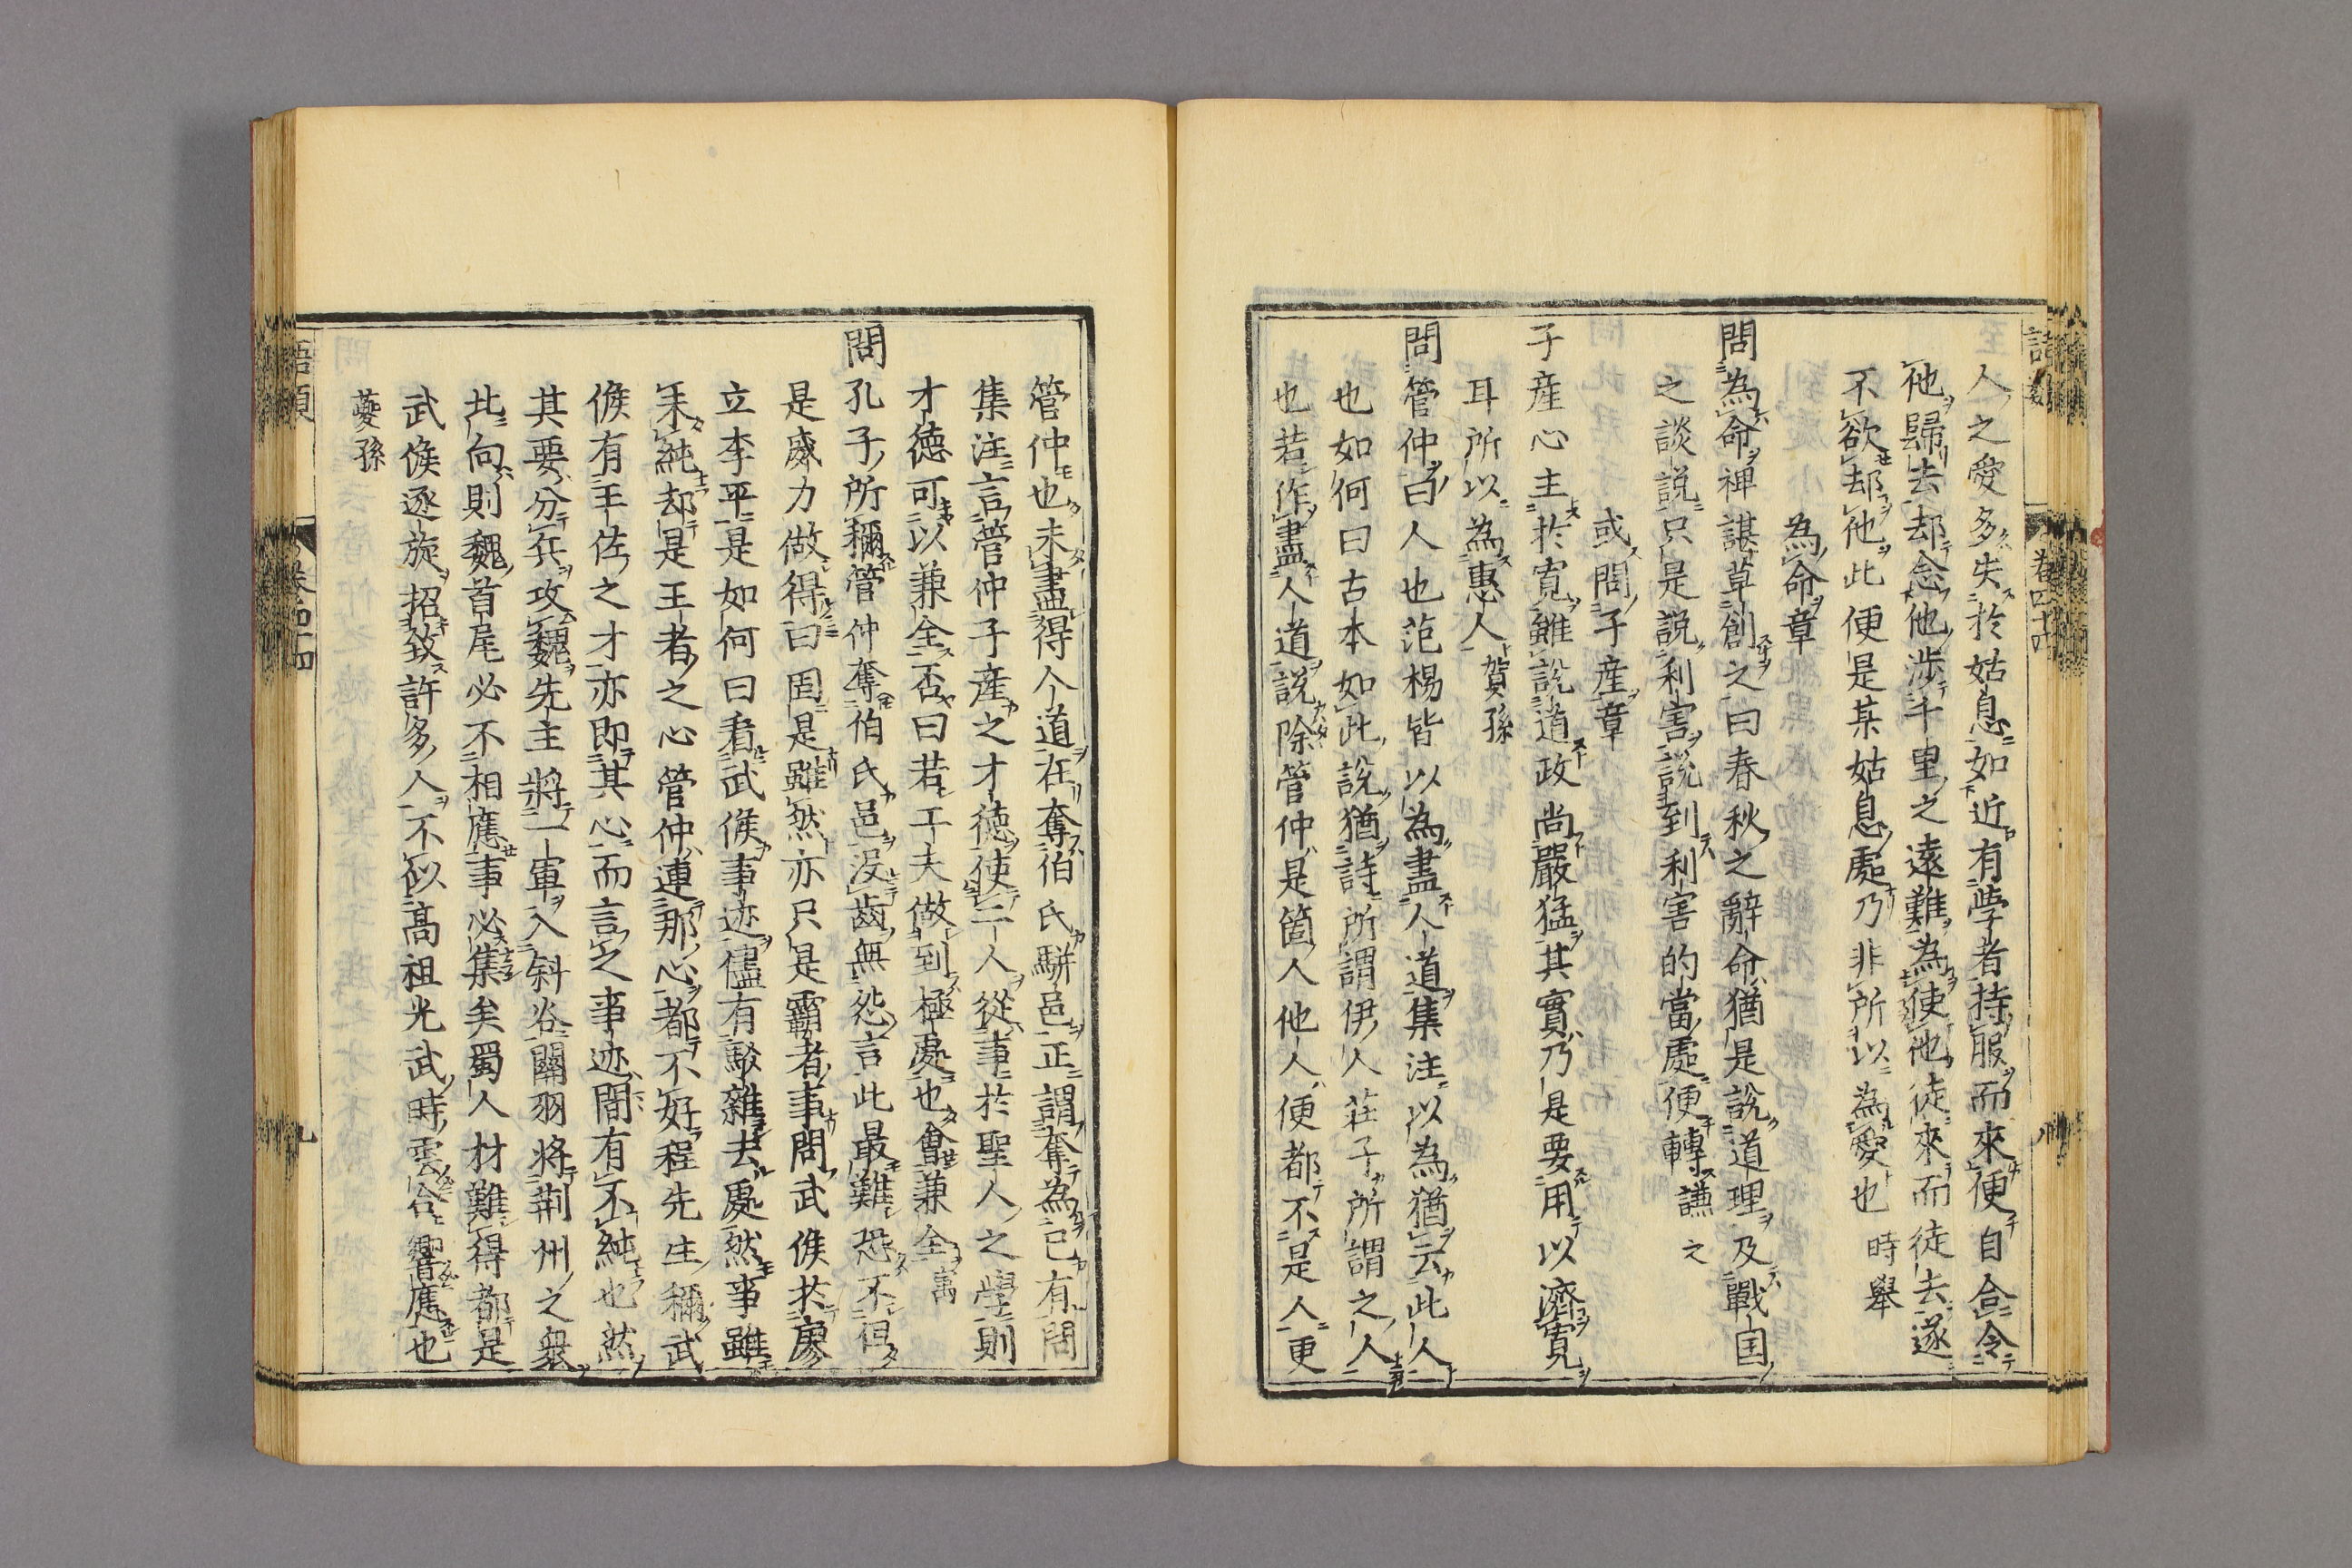 人之愛多失於姑息如近有學者持服而來便自合令
他歸去却念他涉千里之遠難為使他徒來而徒去遂
不欲却他此便是某姑息處乃非所以為愛也 時舉
為命章
問為命裨諶草創之曰春秋之辭命猶是說道理及戰国
之談說只是說利害說到利害的當處便轉 謙之
或問子産章
子産心主於寛雖說道政尚嚴猛其實乃是要用以濟寛
耳所以為惠人 賀孫
問管仲曰人也范楊皆以為盡人道集注以為猶云此人
也如何曰古本如此說猶詩所謂伊人莊子所謂之人
也若作盡人道說除管仲是箇人他人便都不是人更
管仲也未盡得人道在奪伯氏駢邑正謂奪為己有問
集注言管仲子産之才徳使二人從事於聖人之學則
才徳可以兼全否曰若工夫做到極處也會兼全 㒖
問孔子所稱管仲奪伯氏邑没齒無怨言此最難恐不但
是威力做得曰固是雖然亦只是霸者事問武侯於廖
立李平是如何曰看武侯事迹儘有駁雜去處然事雖
未純却是王者之心管仲連那心都不好程先生稱武
侯有王佐之才亦即其心而言之事迹間有不純也然
其要分兵攻魏先主將一軍入斜谷關羽将荆州之衆
北向則魏首尾必不相應事必集矣蜀人材難得都是
武侯逐旋招致許多人不似高祖光武時雲合響應也
蘷孫
語類
巻四十四
九